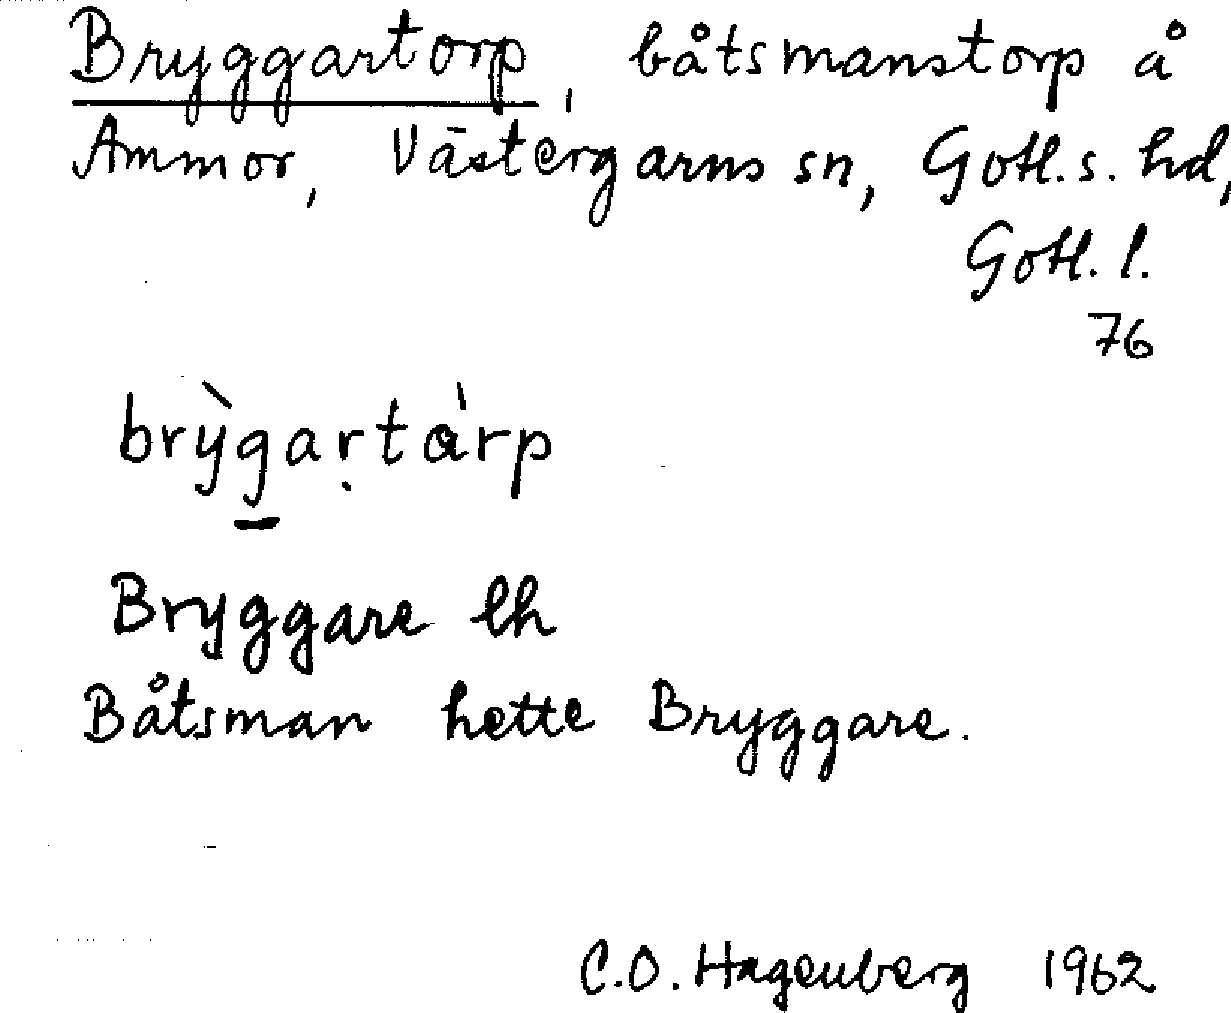 Bryggartorp, båtsmanstorp å
Ammor, Västergarns sn, Gotl. s. hd,
Gotl. l.
76
brỳgaṛtàrp
Bryggare lh
Båtsman hette Bryggare.
C.O. Hagenberg 1962